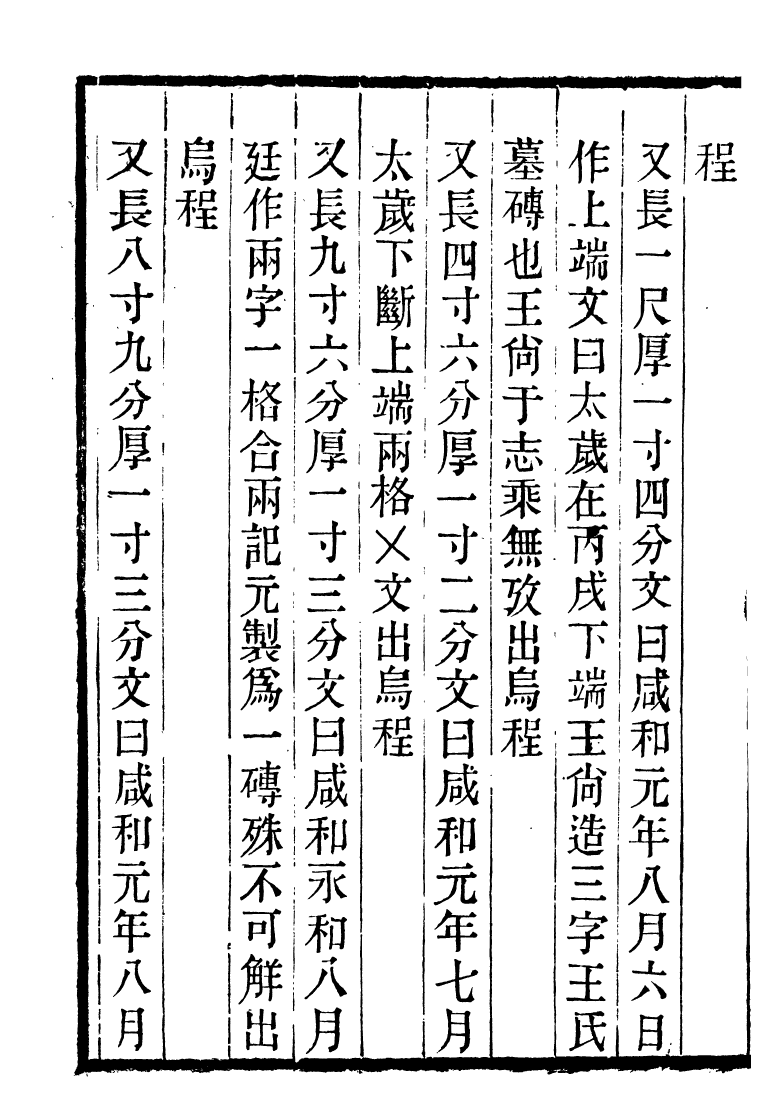 程
又長一尺厚一寸四分文曰咸和元年八月六日
作上端文曰太歲在丙戌下端王尙造三字王氏
墓磚也王尙于志乘無攷出烏程
又長四寸六分厚一寸二分文曰咸和元年七月
太歲下斷上端兩格㐅文出烏程
又長九寸六分厚一寸三分文曰咸和永和八月
廷作兩字一格合兩記元製爲一磚殊不可解出
烏程
又長八寸九分厚一寸三分文曰咸和元年八月